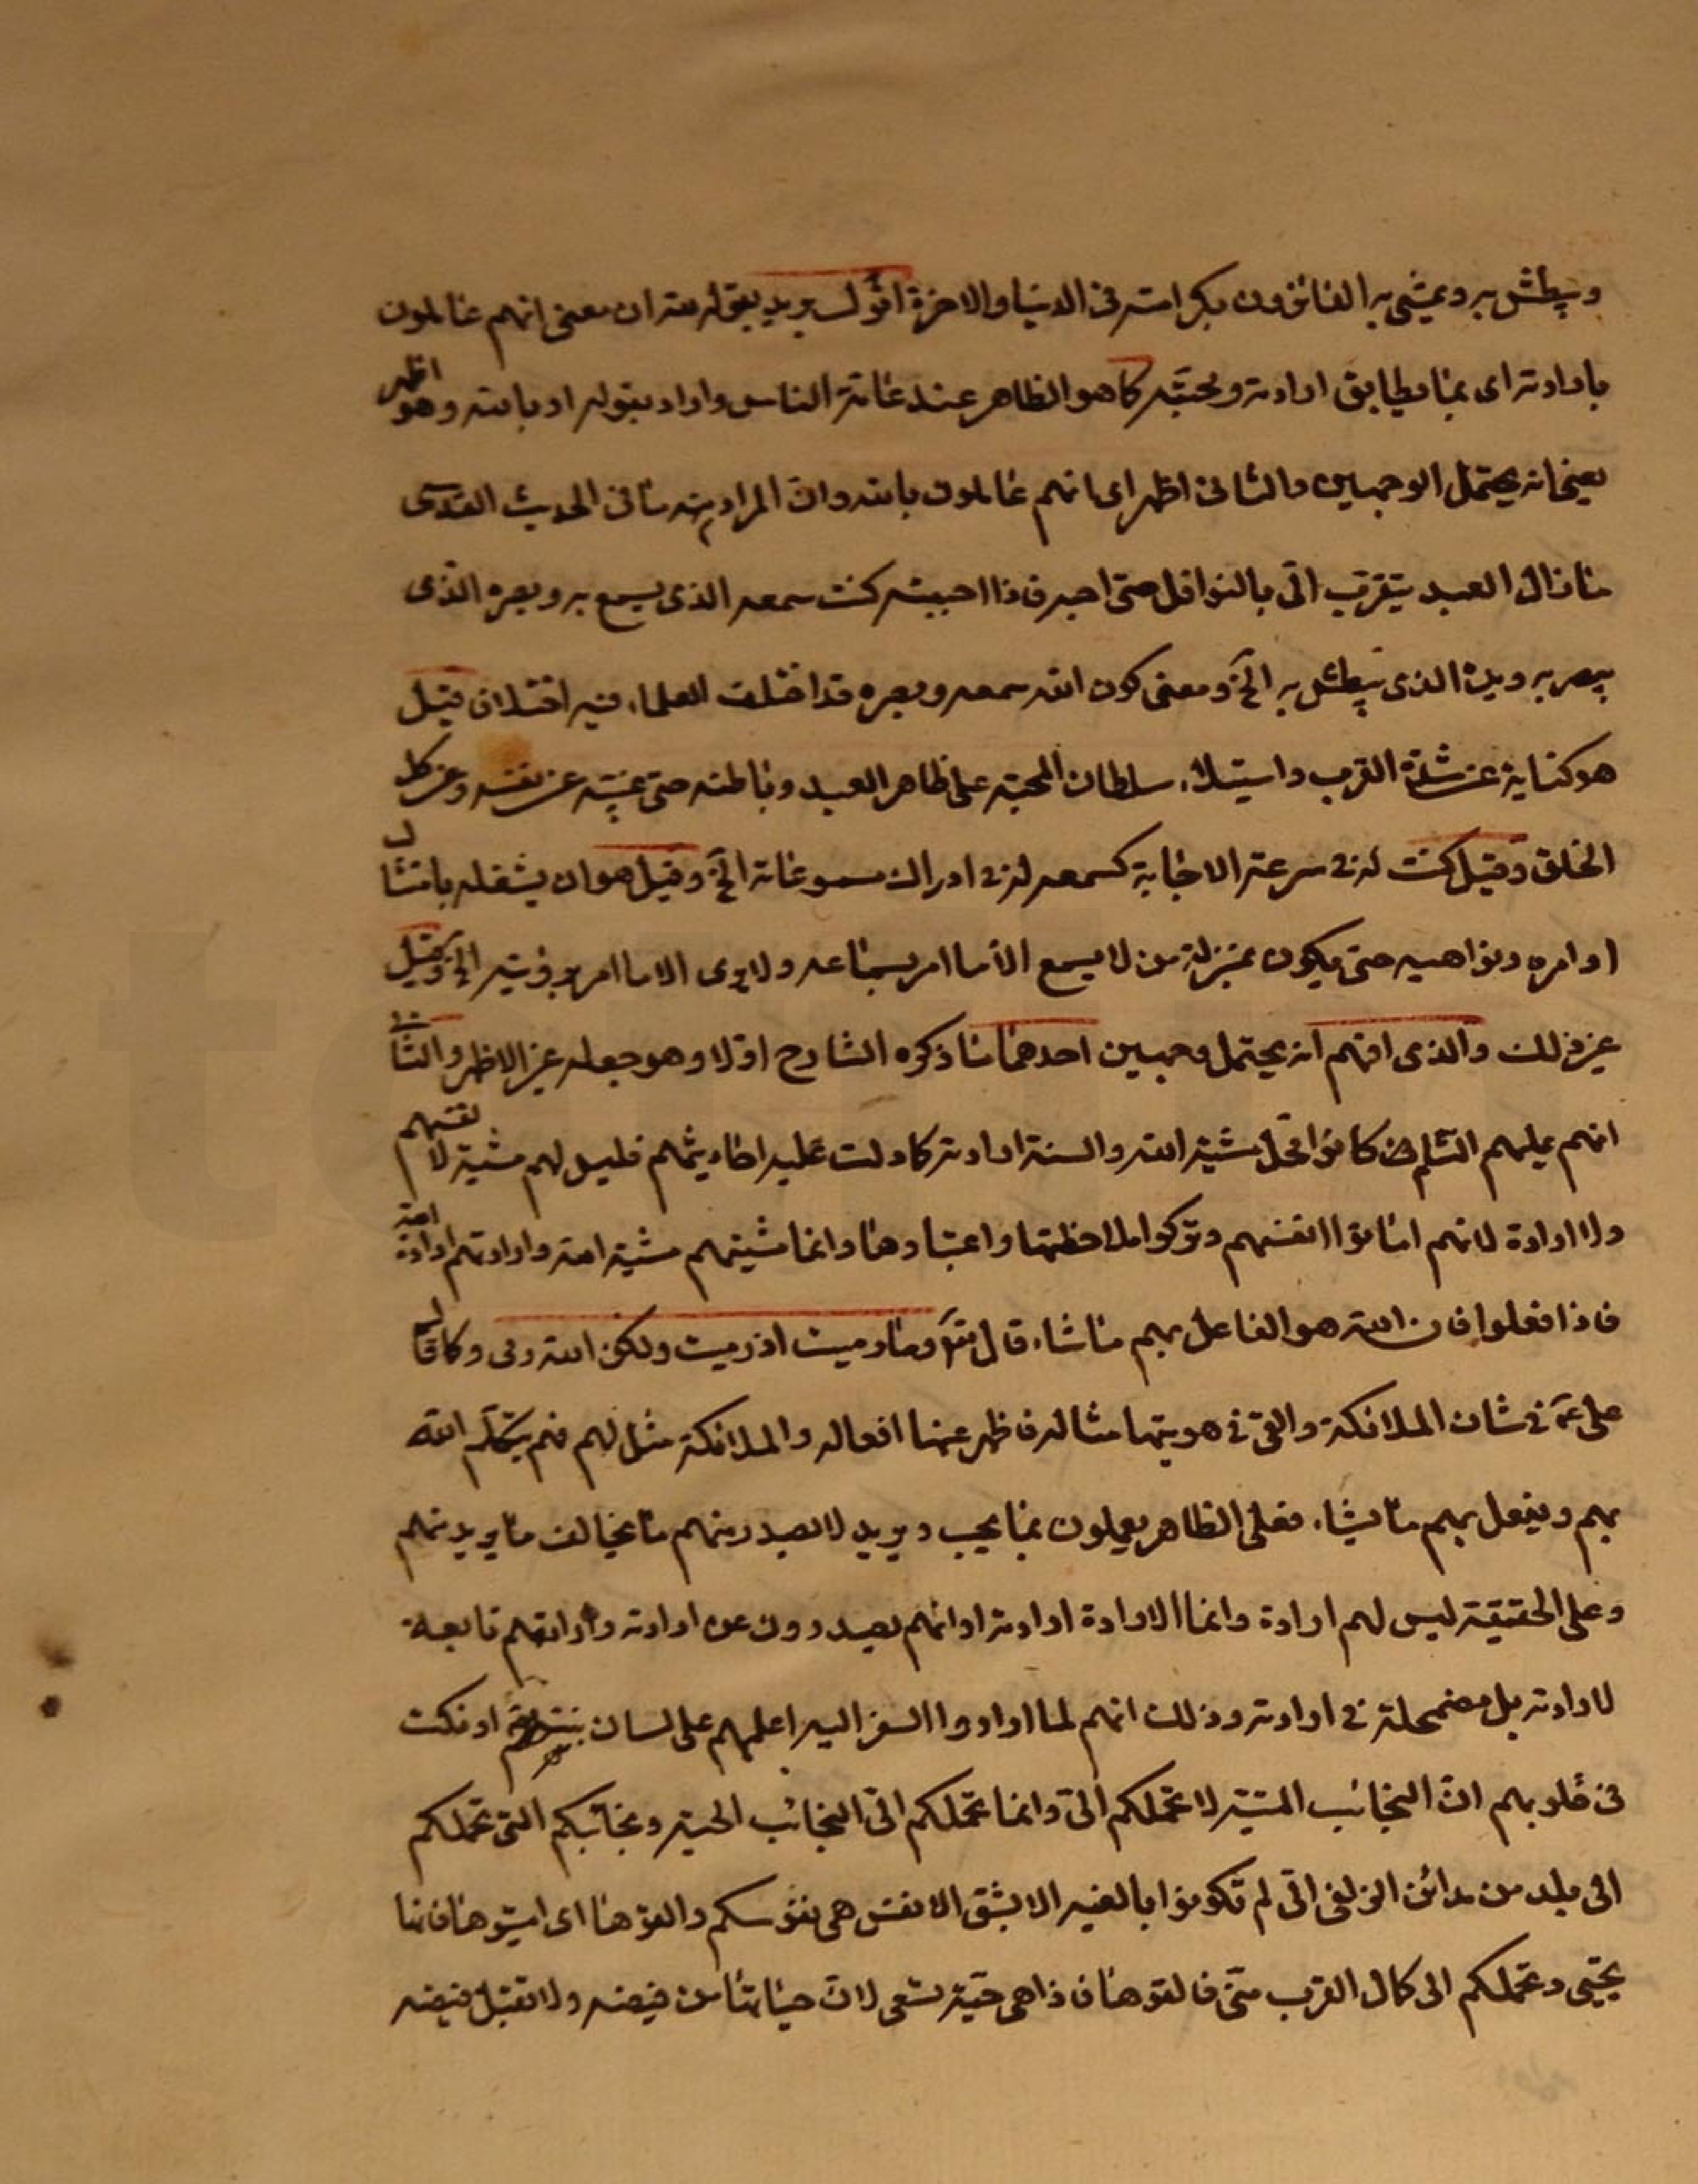 ويبطش به ويمشى به الفائزون بكرامته فى الدنيا والاخرة اقول يريد بقوله ره ان معنى انهم عاملون
بارادته اى بما يطابق ارادته ومحبته كما هو الظاهر عند عامة الناس واراد بقوله او بالله وهو اظهر
يعنى انه يحتمل الوجهين والثانى اظهر اى انهم عاملون بالله وان المراد منه ما فى الحديث القدسى
ما زال العبد يتقرب الىّ بالنوافل حتى احبه فاذا احببته كنت سمعه الذى يسمع به وبصره الذى
يبصر به ويده الذى يبطش به الخ ومعنى كون الله سمعه وبصره قد اختلف العلماء فيه اختلاف قيل
هو كناية عن شدة القرب واستيلاء سلطان المحبة على ظاهر العبد وباطنه حتى غيّبه عن نفسه وعن كل
الخلق وقيل كنت له فى سرعة الاجابة كسمعه له فى ادراك مسموعاته الخ وقيل هو ان يشغله بامتثال
اوامره ونواهيه حتى يكون بمنزلة من لا يسمع الا ما امر بسماعه ولا يرى الا ما امر برؤيته الخ وقيل
غير ذلك والذى افهم انه يحتمل وجهين احدهما ما ذكره الشارح اولا وهو جعله غير الاظهر والثانى
انهم عليهم السلم كانوا محل مشية الله والسنة ارادته كما دلت عليه احاديثهم فليس لهم مشية لانفسهم
ولا ارادة لانهم اماتوا انفسهم وتركوا ملاحظتها واعتبارها وانما مشيتهم مشية الله وارادتهم ارادة الله
فاذا فعلوا فان الله هو الفاعل بهم ما شاء قال تعالى وما رميت اذ رميت ولكن الله رمى وكما قال
على ع فى شان الملائكة والقى فى هويتها مثاله فاظهر عنها افعاله والملائكة مثل لهم فهم يتكلم الله
بهم ويفعل بهم ما يشاء فعلى الظاهر يعملون بما يحب ويريد لا يصدر منهم ما يخالف ما يريد منهم
وعلى الحقيقة ليس لهم ارادة وانما الارادة ارادته او انهم يصدرون عن ارادته وارادتهم تابعة
لارادته بل مضمحلة فى ارادته وذلك انهم لما ارادوا السفر اليه اعلمهم على لسان او نكت
فى قلوبهم انّ النجائب الميتة لا تحملكم الىّ وانما تحملكم الىّ النجائب الحية ونجائبكم التى تحملكم
الى بلد من مدائن الزلفى التى لم تكونوا بالغيه الا بشق الانفس هى نفوسكم والقوها اى اميتوها فانها
تحيى وتحملكم الى كمال القرب منّى فالقوها فاذا هى حيّة تسعى لانّ حياتها من فيضه ولا تقبل فيضه